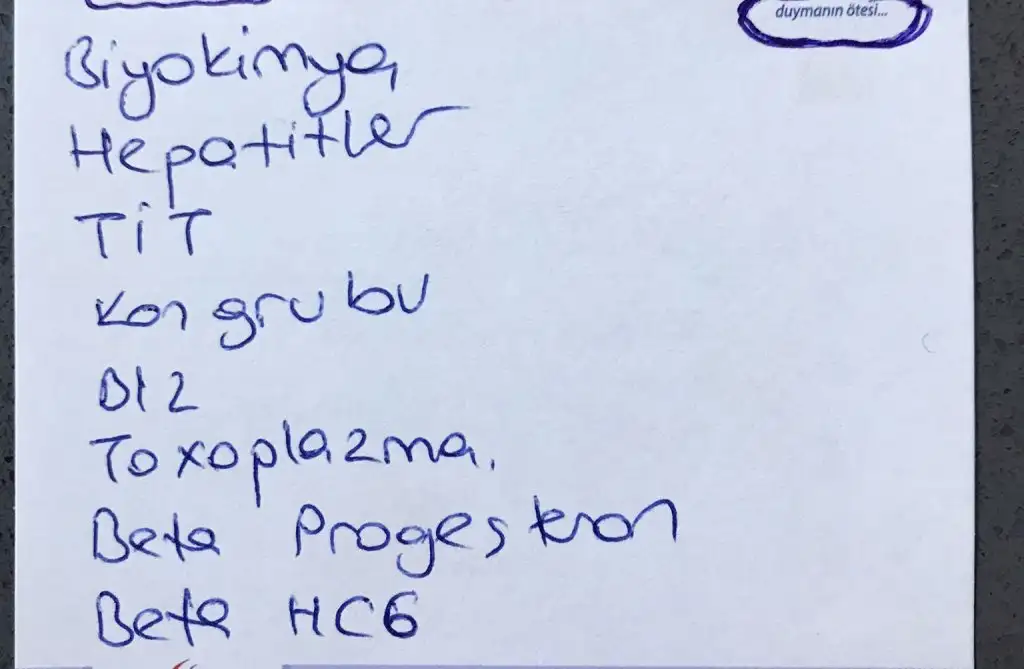 duymanın ötesi...
Biyokimya,
Hepatitler
TİT
Kan grubu
B12
Toxoplazma.
Beta Progesteron
Beta HCG